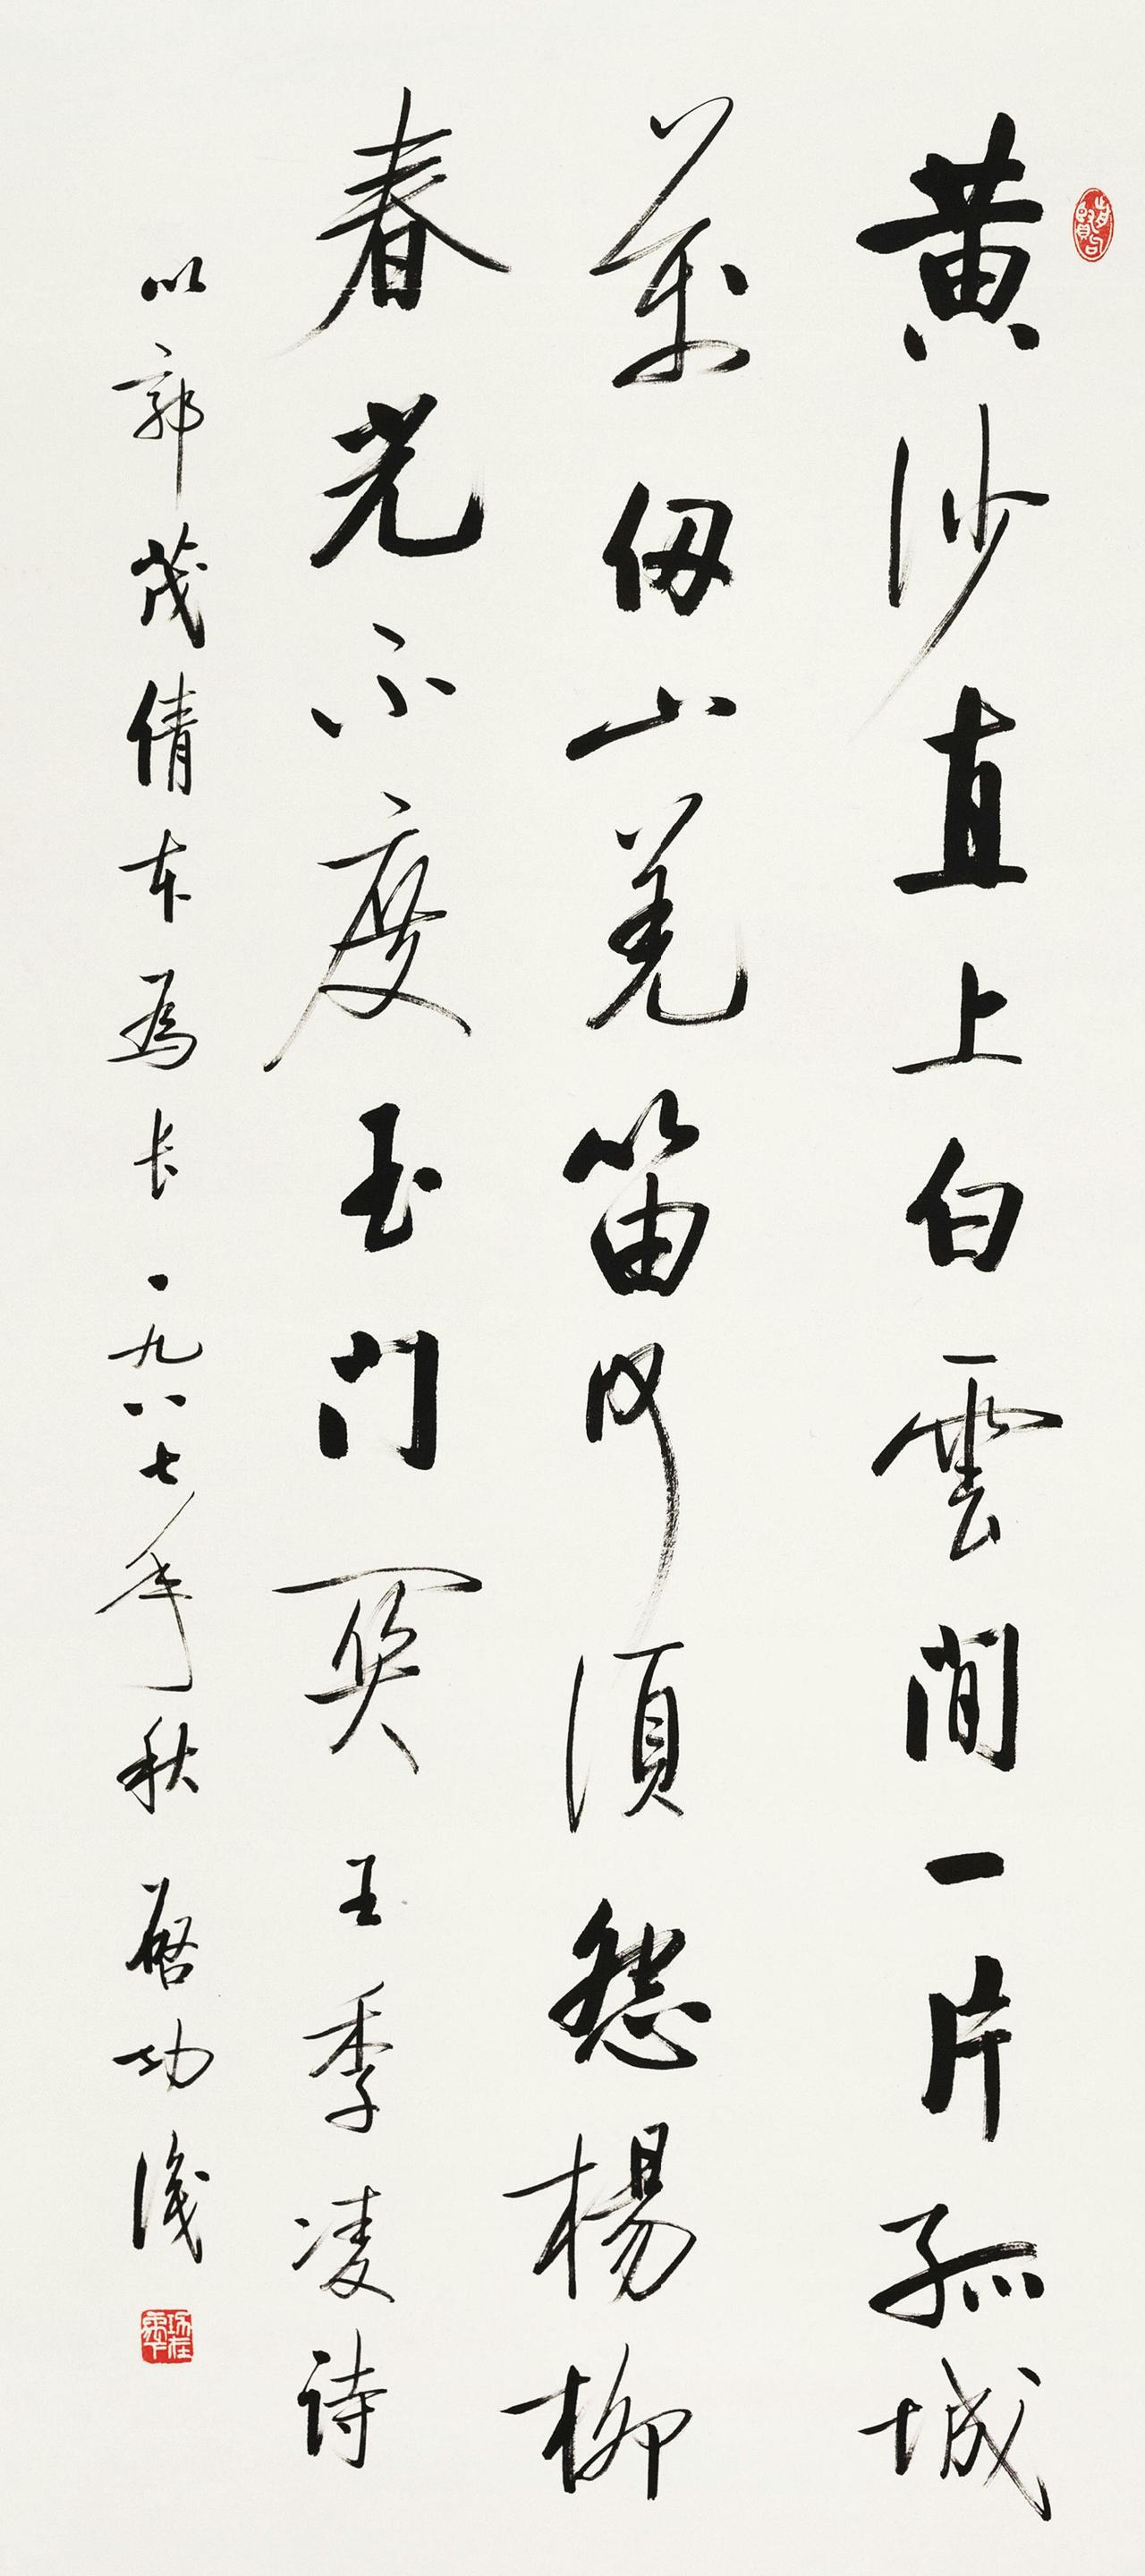 黄沙直上白雲間一片孤城
萬仞山羌笛何須怨楊柳
春光不度玉门关王季凌诗
以郭茂倩本為長一九八七年秋啓功識